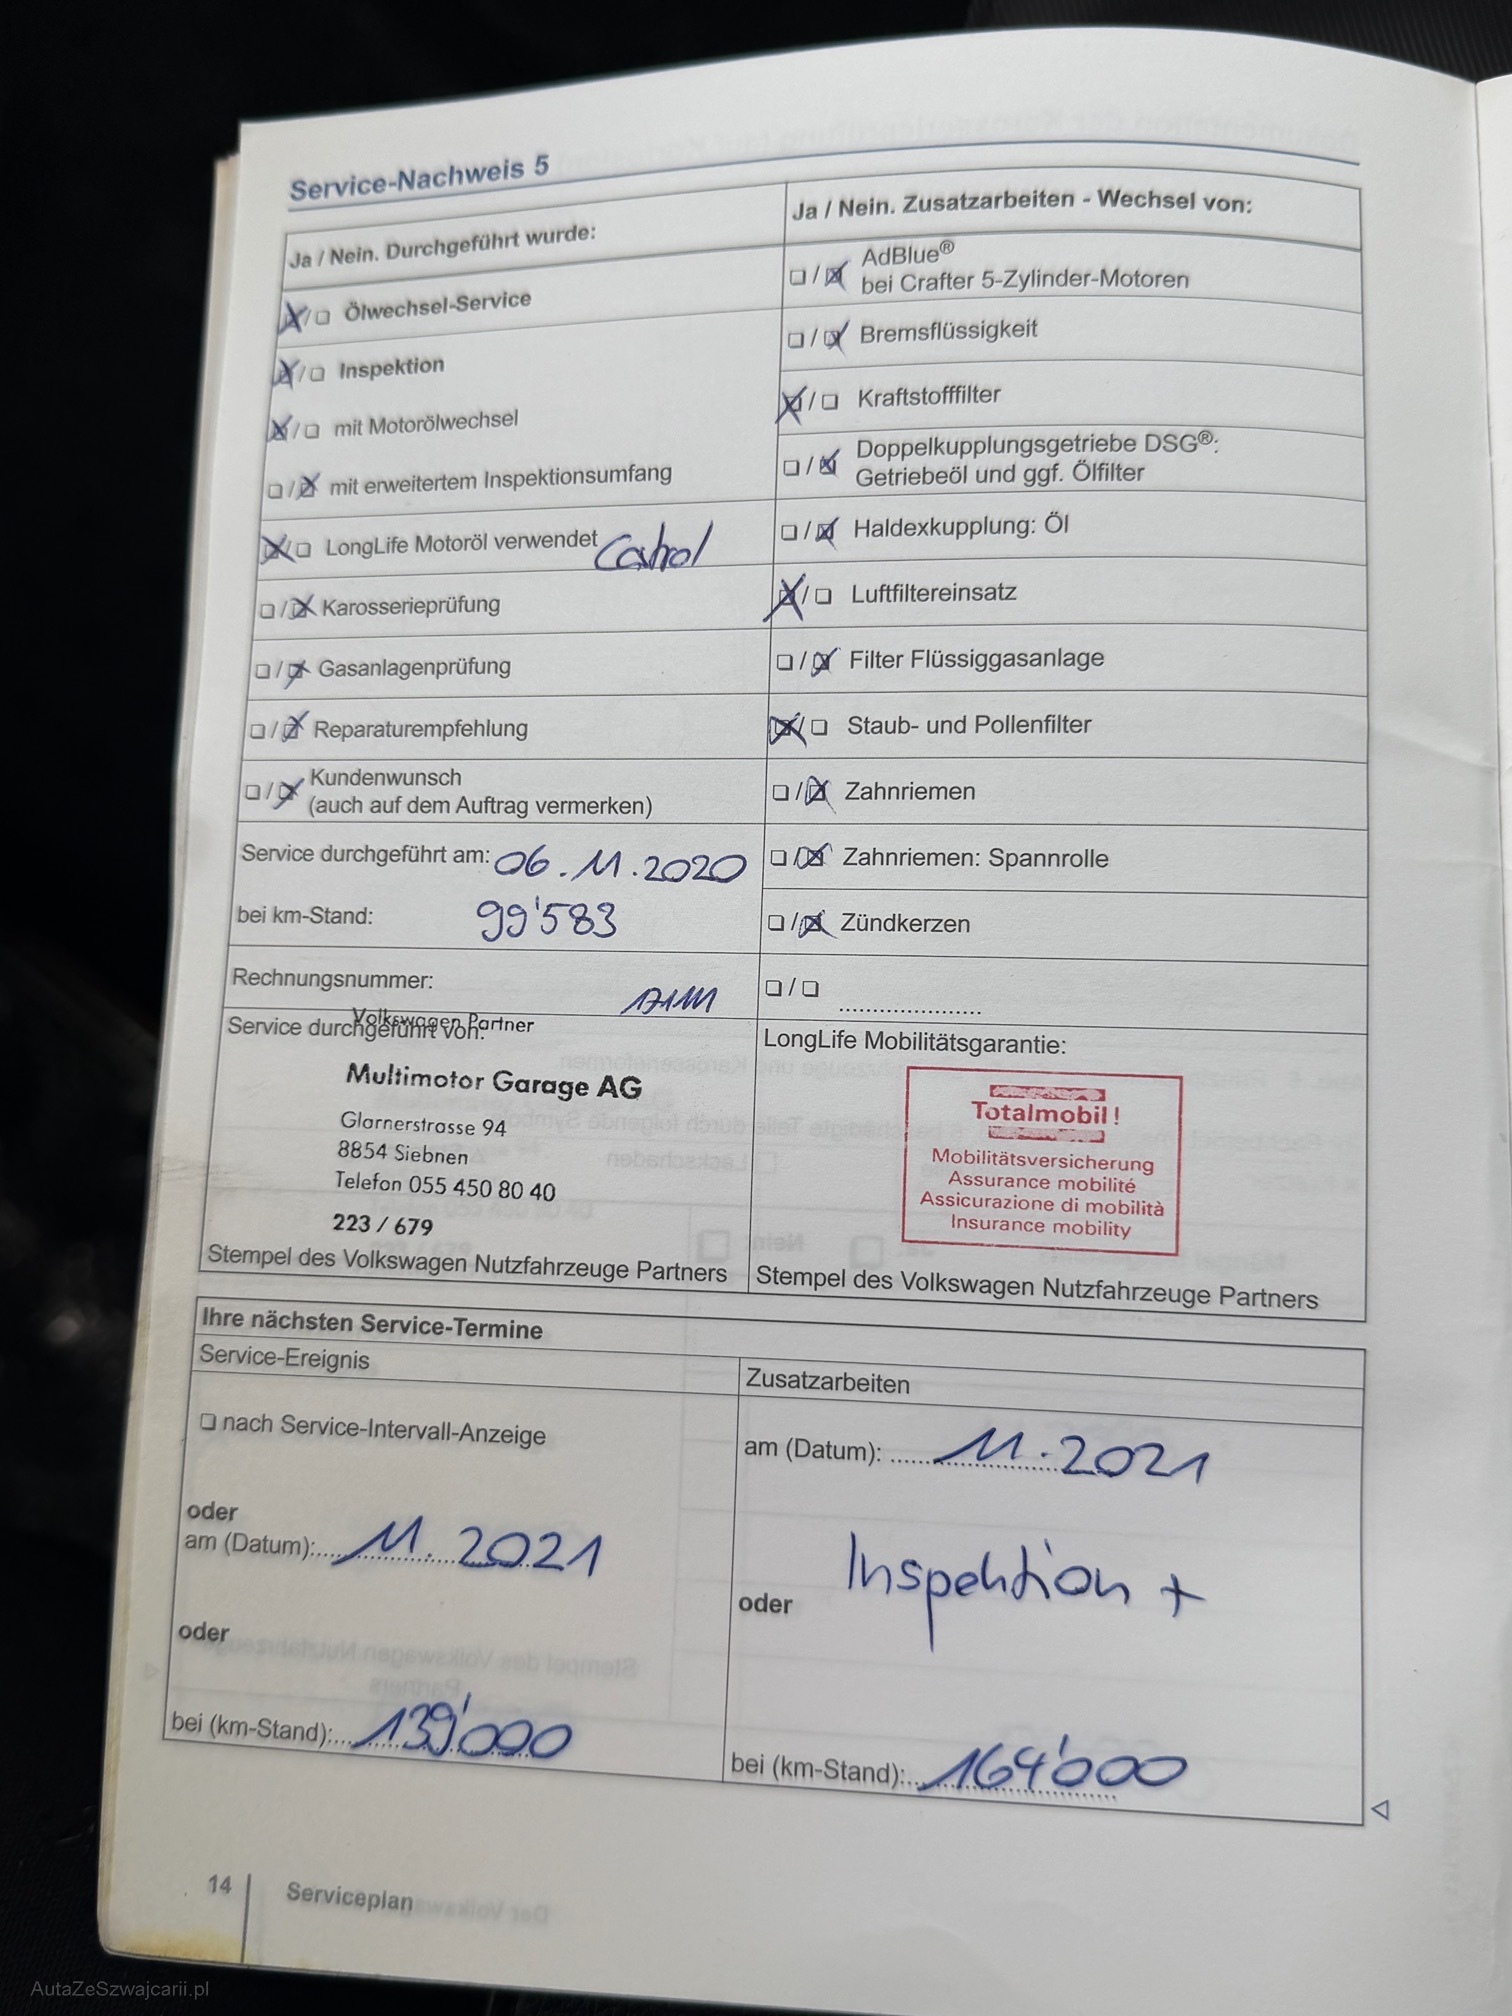 Service-Nachweis 5
Ja / Nein. Durchgeführt wurde:
☒/☐ Ölwechsel-Service
☒/☐ Inspektion
☒/☐ mit Motorölwechsel
☐/☒ mit erweitertem Inspektionsumfang
☒/☐ LongLife Motoröl verwendet Castrol
☐/☒ Karosserieprüfung
☐/☒ Gasanlagenprüfung
☐/☒ Reparaturempfehlung
☐/☒ Kundenwunsch
(auch auf dem Auftrag vermerken)
Service durchgeführt am: 06.11.2020
bei km-Stand: 99'583
Rechnungsnummer:
Service durchgeführt von:
Volkswagen Partner
Multimotor Garage AG
Glarnerstrasse 94
8854 Siebnen
Telefon 055 450 80 40
223 / 679
Stempel des Volkswagen Nutzfahrzeuge Partners
Ja / Nein. Zusatzarbeiten - Wechsel von:
☐/☒ AdBlue®
bei Crafter 5-Zylinder-Motoren
☐/☒ Bremsflüssigkeit
☒/☐ Kraftstofffilter
☐/☒ Doppelkupplungsgetriebe DSG®:
Getriebeöl und ggf. Ölfilter
☐/☒ Haldexkupplung: Öl
☒/☐ Luftfiltereinsatz
☐/☒ Filter Flüssiggasanlage
☒/☐ Staub- und Pollenfilter
☐/☒ Zahnriemen
☐/☒ Zahnriemen: Spannrolle
☐/☒ Zündkerzen
☐/☐ ......................
LongLife Mobilitätsgarantie:
Totalmobil!
Mobilitätsversicherung
Assurance mobilité
Assicurazione di mobilità
Insurance mobility
Stempel des Volkswagen Nutzfahrzeuge Partners
Ihre nächsten Service-Termine
Service-Ereignis
☐ nach Service-Intervall-Anzeige
oder
am (Datum): 11.2021
oder
bei (km-Stand): 139'000
Zusatzarbeiten
am (Datum): 11.2021
Inspektion +
oder
bei (km-Stand): 164'000
14
Serviceplan
AutaZeSzwajcarii.pl